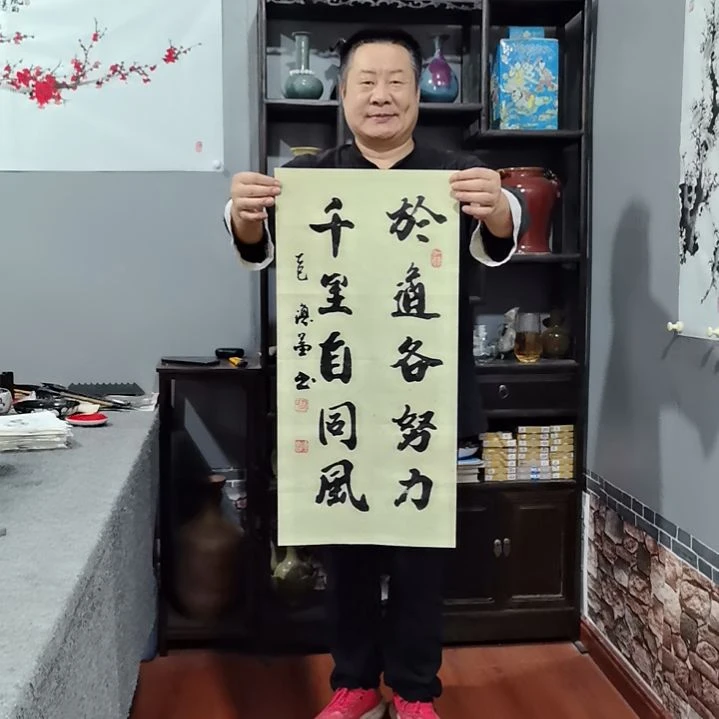 於道各努力
千里自同風